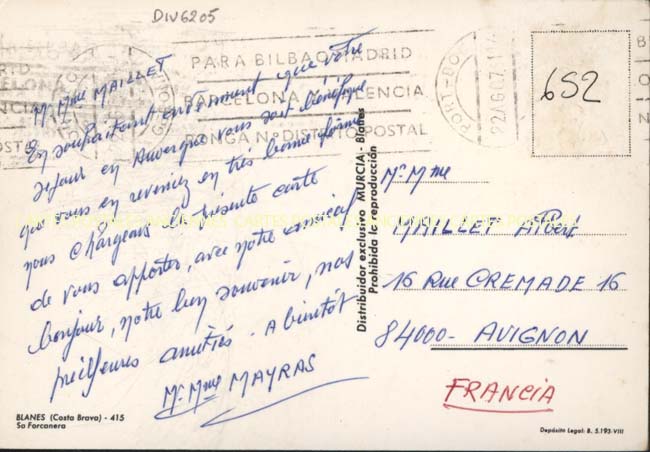 DIV6205
PARA BILBAO, MADRID
BARCELONA, VALENCIA
PONGA Nº DISTRITO POSTAL
PORT-BOU
652
Mr Mme MAILLET
En souhaitant ardemment que votre
séjour en Auvergne vous soit bénéfique
que vous en reveniez en très bonne forme
nous chargeons la présente carte
de vous apporter, avec notre amical
bonjour, notre bon souvenir, nos
meilleures amitiés. A bientôt
Mr Mme MAYRAS
BLANES (Costa Brava) - 415
Sa Forcanera
Distribuidor exclusivo MURCIA - Blanes
Prohibida la reproducción
Mr Mme
MAILLET Albert
16 Rue CREMADE 16
84000 - AVIGNON
FRANCIA
Depósito Legal: B. 5.193-VIII